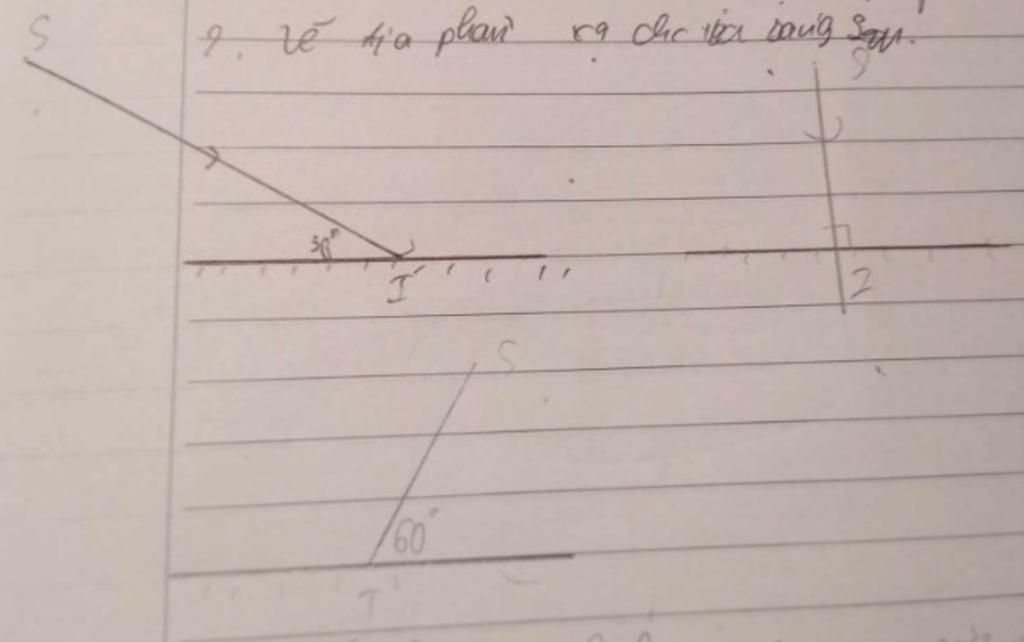 S
9. Vẽ tia phản xạ cho tia sáng sau.
S
30°
I
I
S
60°
I